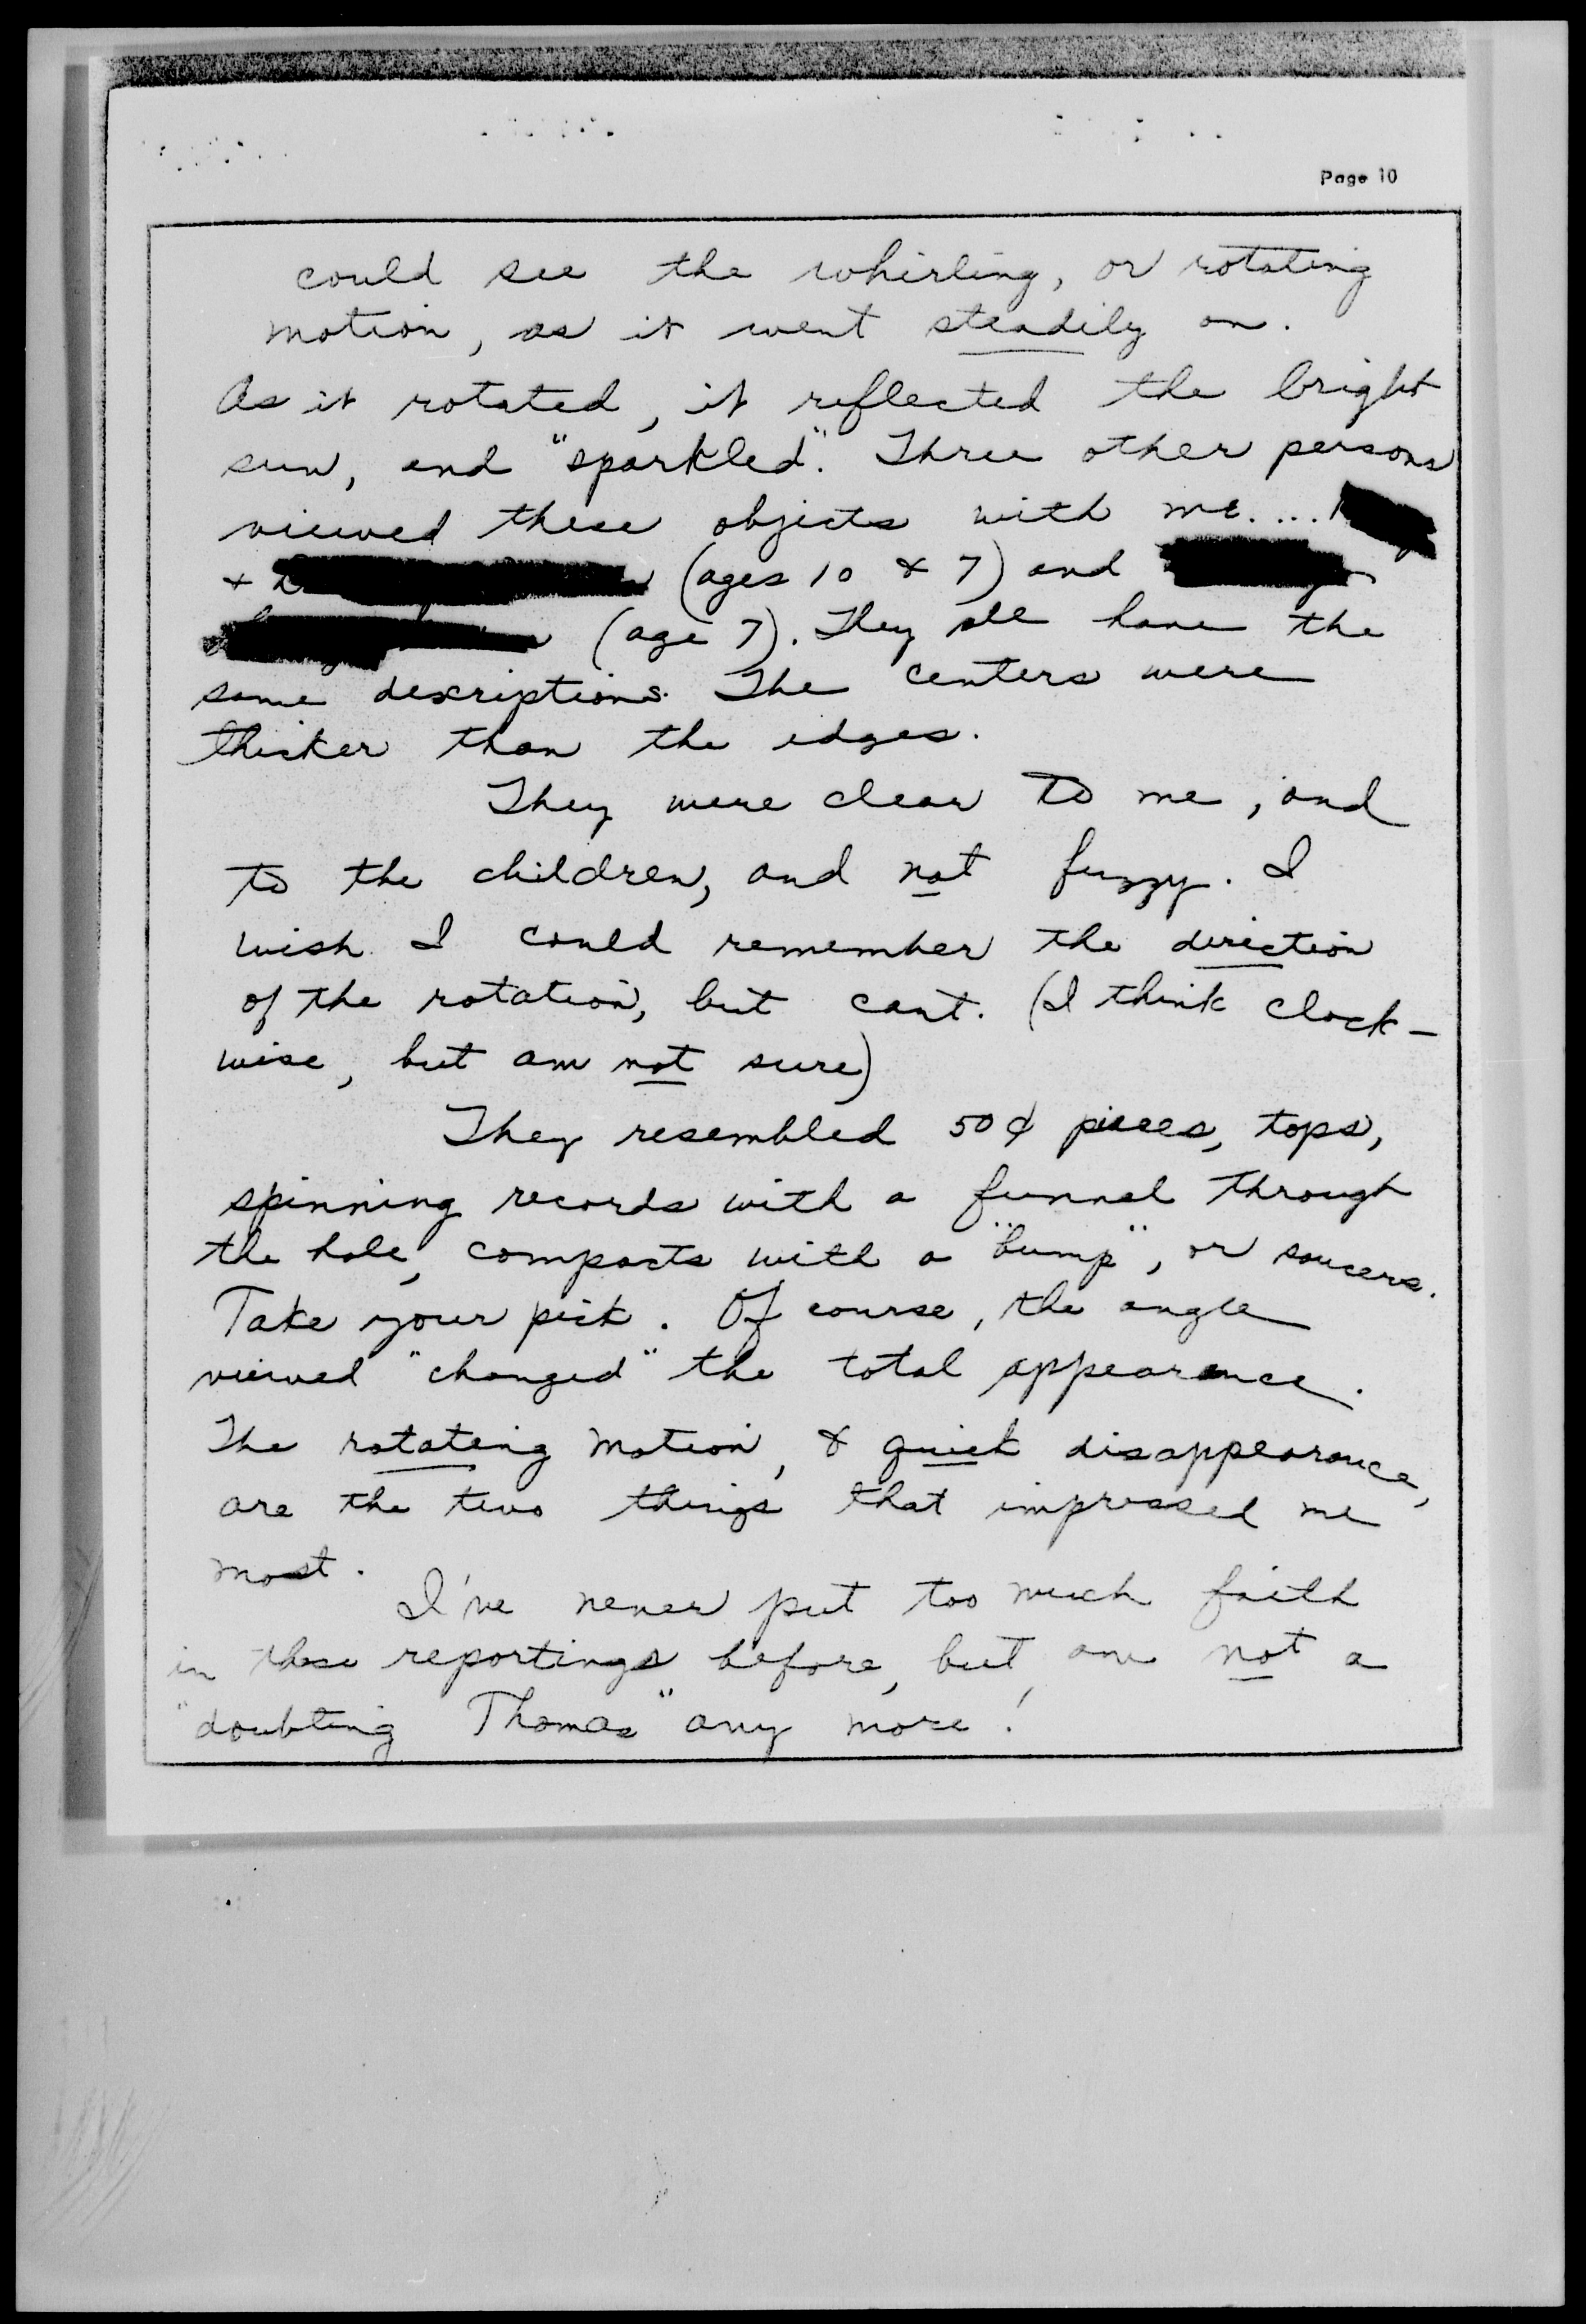 Page 10
could see the whirling, or rotating
motion, as it went steadily on.
As it rotated, it reflected the bright
sun, and "sparkled". Three other persons
viewed these objects with me....
+ (ages 10 & 7) and
(age 7). They all have the
same descriptions. The centers were
thicker than the edges.
They were clear to me, and
to the children, and not fuzzy. I
wish I could remember the direction
of the rotation, but cant. (I think clock-
wise, but am not sure)
They resembled 50¢ pieces, tops,
spinning records with a funnel through
the hole, compacts with a "bump", or saucers.
Take your pick. Of course, the angle
viewed "changed" the total appearance.
The rotating motion, & quick disappearance,
are the two things that impressed me
most.
I've never put too much faith
in these reportings before, but am not a
"doubting Thomas" any more!